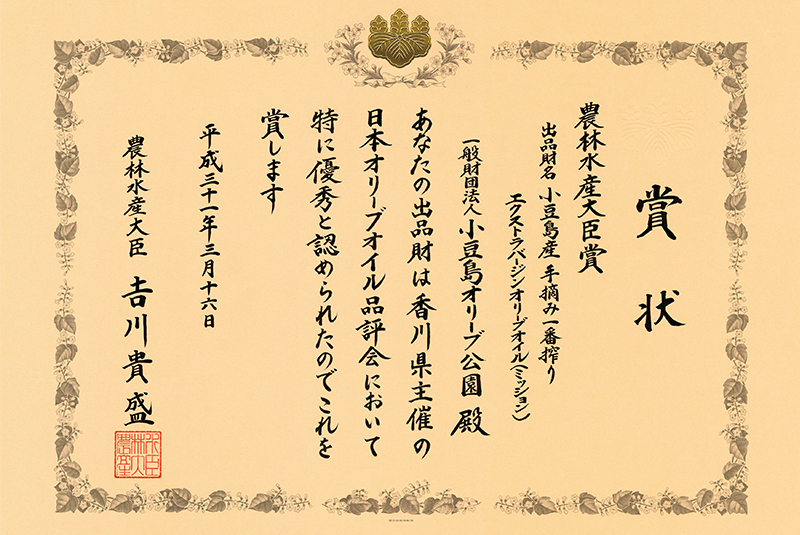 賞状
農林水産大臣賞
出品財名 小豆島産 手摘み一番搾り
エクストラバージンオリーブオイル(ミッション)
一般財団法人 小豆島オリーブ公園 殿
あなたの出品財は香川県主催の
日本オリーブオイル品評会において
特に優秀と認められたのでこれを
賞します
平成三十一年三月十六日
農林水産大臣 𠮷川貴盛